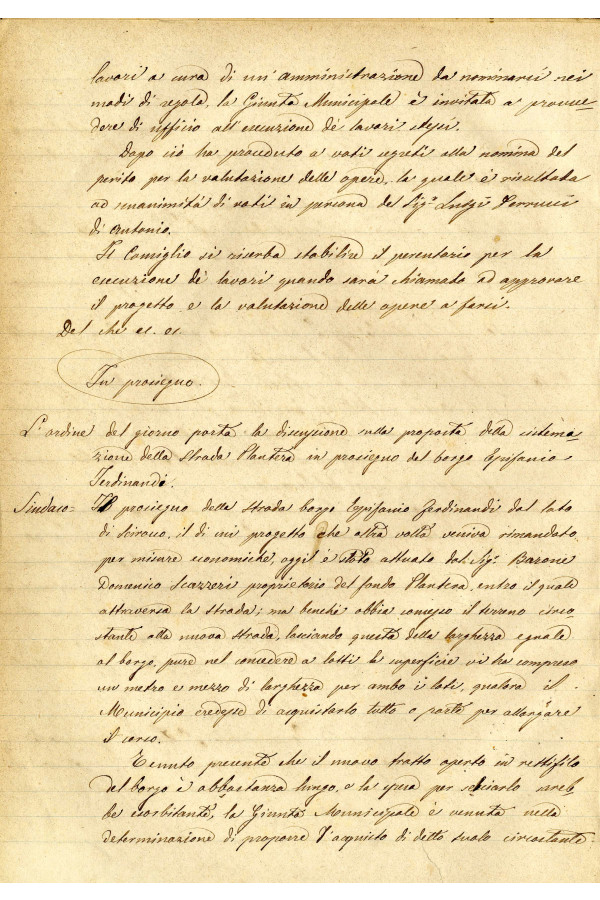 lavori a cura di un' amministrazione da nominarsi nei
modi di regola, la Giunta Municipale è invitata a provve-
dere di ufficio all'esecuzione dè lavori stessi.
Dopo ciò ha proceduto a voti segreti alla nomina del
perito per la valutazione delle opere, la quale è risultata
ad unanimità di voti in persona del Sigr. Luigi Ferrucci
di Antonio.
Il Consiglio si riserba stabilire il perentorio per la
esecuzione dè lavori quando sarà chiamato ad approvare
il progetto e la valutazione delle opere a farsi.
Del che ec. ec.
In prosieguo.
L'ordine del giorno porta la discussione sulla proposta della sistema-
zione della strada Plantera in prosieguo del borgo Epifanio
Ferdinandi.
Sindaco = Il prosieguo della strada borgo Epifanio Ferdinandi dal lato
di Scirocco, il di cui progetto che altra volta veniva rimandato
per misure economiche, oggi è stato attuato dal Sigr. Barone
Domenico Scazzeri proprietario del fondo Plantera, entro il quale
attraversa la strada; ma benchè abbia concesso il terreno circo-
stante alla nuova strada, lasciando questa della larghezza eguale
al borgo, pure nel concedere a lotti la superficie vi ha compreso
un metro e mezzo di larghezza per ambo i lati, qualora il
Municipio credesse di acquistarlo tutto o parte per allargare
il corso.
Tenuto presente che il nuovo tratto aperto in rettifilo
del borgo è abbastanza lungo, e la spesa per selciarlo sareb-
be esorbitante, la Giunta Municipale è venuta nella
determinazione di proporre l'acquisto di detto suolo circostante